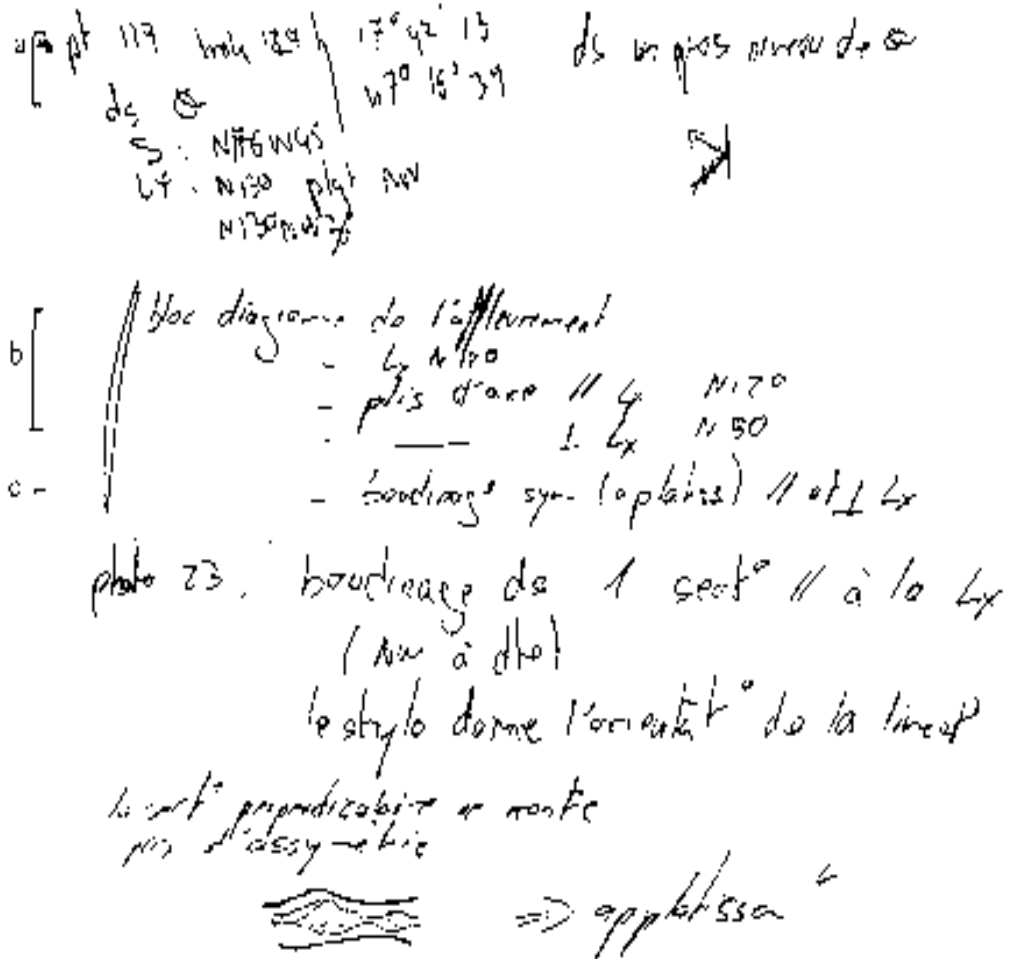 a pt 117 17° 42' 13 ds un gros niveau de
47° 16' 34
ds
S : N
Lx : N130 NW
N130
bloc diagramme de l'affleurement
b - Lx N120
- plis d'axe // Lx N120
- —— ⊥ Lx N30
c - - boudinage sym (aplatiss) // et ⊥ Lx
photo 23. boudinage ds 1 sect° // à la Lx
(NW à dte)
le stylo donne l'orientat° de la lineat°
la sect° perpendiculaire ne montre
pas d'assymétrie
=> applatissa^t